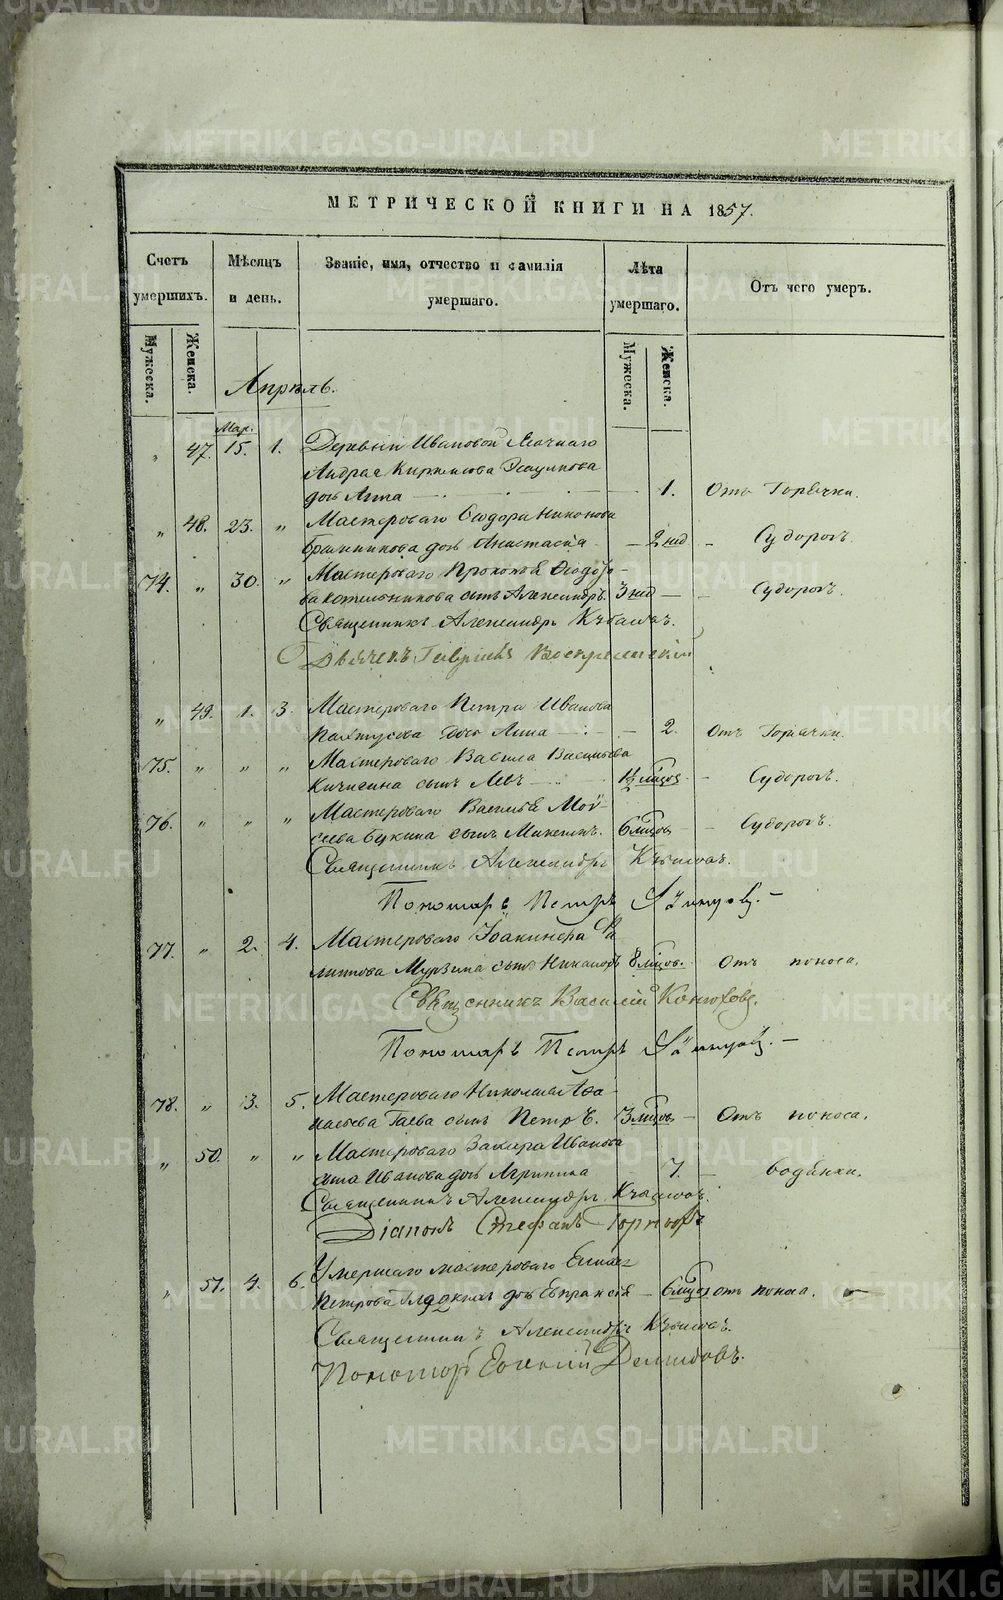 МЕТРИЧЕСКОЙ КНИГИ НА 1857.
Счетъ умершихъ. Мѣсяцъ и день. Званіе, имя, отчество и фамилія умершаго. Лѣта умершаго. Отъ чего умеръ.
Мужеска. Женска. Мужеска. Женска.
Апрѣль.
Мар.
" 47. 15. 1. Деревни Ивановой
Андрея
дочь Анна 1. Отъ Горячки.
" 48. 23. " Мастероваго Ѳеодора Никонова
дочь Анастасія 2 нед Судорогъ.
74. " 30. " Мастероваго Прокопія Ѳеодоро-
ва Котельникова сынъ Александръ. 3 нед Судорогъ.
Священникъ Александръ
Дьячекъ Гавріилъ Воскресенскій
" 49. 1. 3. Мастероваго Петра Иванова
дочь Анна 2. Отъ Горячки.
75. " " " Мастероваго Вавила Васильева
Кичигина сынъ Левъ 1½ мѣсяц Судорогъ.
76. " " " Мастероваго Василья Мой-
сеева Букина сынъ 6 мѣсяц Судорогъ.
Священникъ Александръ
Пономарь Петръ
77. " 2. 4. Мастероваго Іоакинфа Фи
липпова Мурзина сынъ Никаноръ 8 мѣсяц. Отъ поноса.
Священникъ Василій Конюховъ.
Пономарь Петръ
78. " 3. 5. Мастероваго Николая Аѳа-
насьева Гаева сынъ Петръ. 3 мѣсяц Отъ поноса.
" 50. " " Мастероваго Захара Иванова
сына Иванова дочь Агрипина 7. водянки.
Священникъ Александръ
Діаконъ Стефанъ
" 51. 4. 6. Умершаго мастероваго
Петрова дочь Евпраксія 6 мѣсяц отъ поноса.
Священникъ Александръ
Пономарь Евгеній Демидовъ.
METRIKI.GASO-URAL.RU